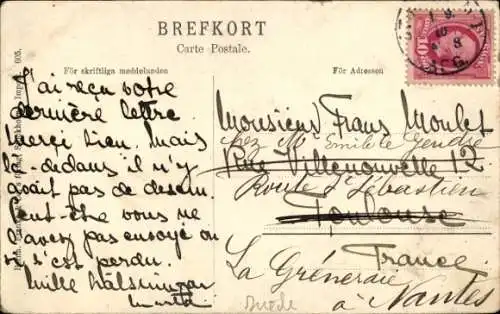 BREFKORT
Carte Postale.
För skriftliga meddelanden
För Adressen
J'ai reçu votre
dernière lettre.
Merci bien. Mais
là-dedans il n'y
avait pas de dessin.
Peut-être vous ne
l'avez pas envoyé ou
il s'est perdu.
Mille hälsningar
Märta
Monsieur Frans Moulet
chez M Emile Le Gendre
Rue Villenouvelle 12
Route St Sébastien
Toulouse
France.
La Gréneraie
à Nantes